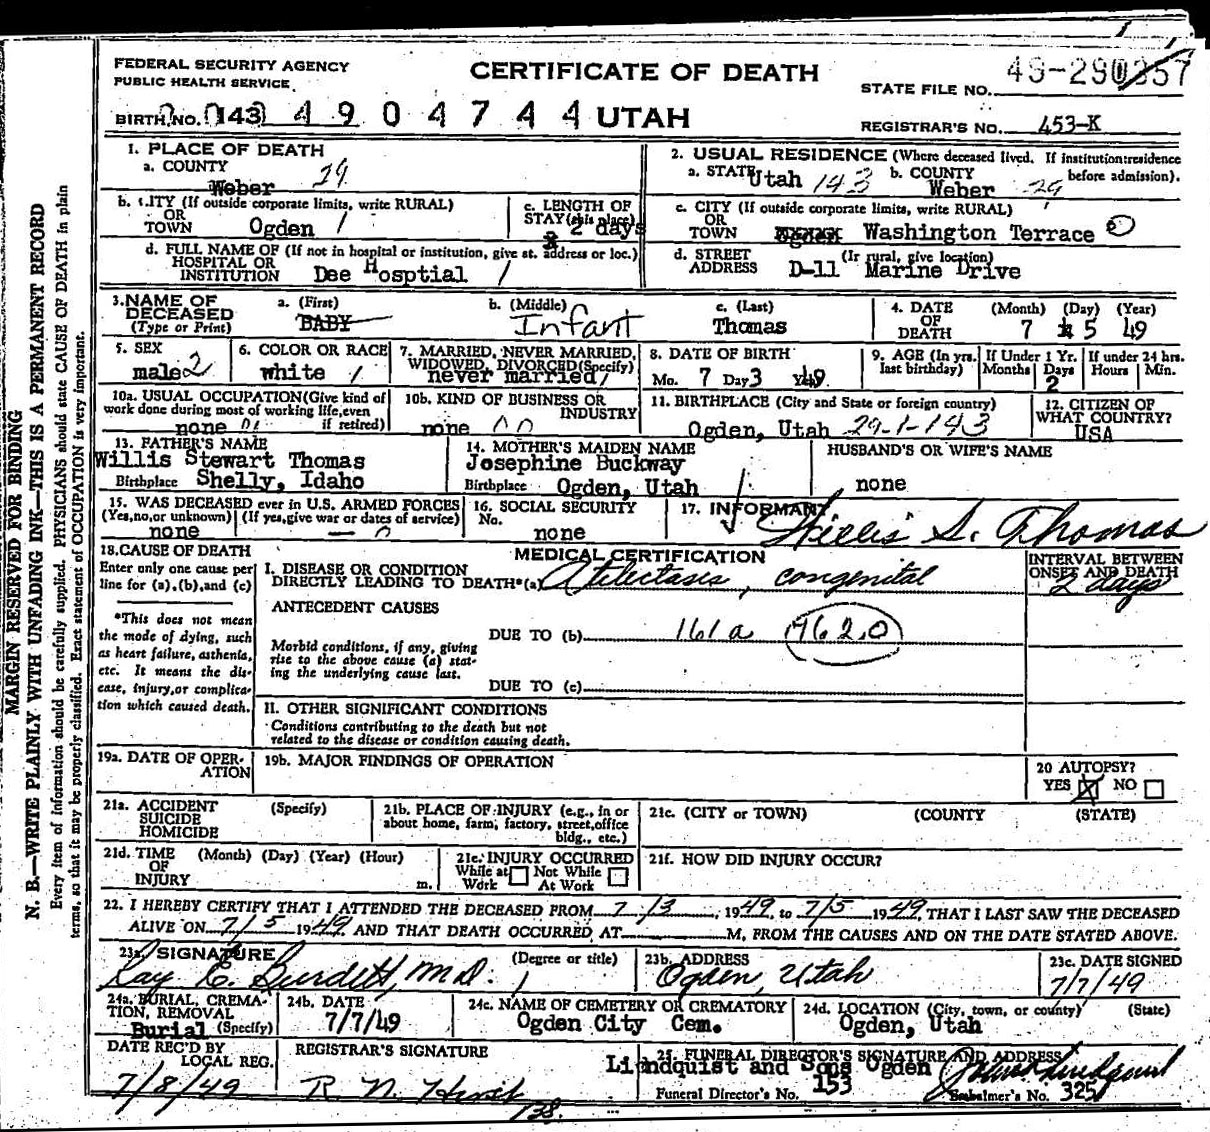 FEDERAL SECURITY AGENCY
PUBLIC HEALTH SERVICE
CERTIFICATE OF DEATH
UTAH
STATE FILE NO. 49-290357
BIRTH NO. 143 4904744
REGISTRAR'S NO. 453-K
MARGIN RESERVED FOR BINDING
N. B.—WRITE PLAINLY WITH UNFADING INK—THIS IS A PERMANENT RECORD
Every item of information should be carefully supplied. PHYSICIANS should state CAUSE OF DEATH in plain
terms, so that it may be properly classified. Exact statement of OCCUPATION is very important.
1. PLACE OF DEATH
a. COUNTY
Weber 29
2. USUAL RESIDENCE (Where deceased lived. If institution: residence
before admission).
a. STATE Utah 143 b. COUNTY
Weber 29
b. CITY (If outside corporate limits, write RURAL)
OR
TOWN Ogden 1
c. LENGTH OF
STAY (this place)
2 days
c. CITY (If outside corporate limits, write RURAL)
OR
TOWN Washington Terrace
d. FULL NAME OF (If not in hospital or institution, give st. address or loc.)
HOSPITAL OR
INSTITUTION Dee Hosptial 1
d. STREET (If rural, give location)
ADDRESS D-11 Marine Drive
3. NAME OF
DECEASED
(Type or Print)
a. (First)
BABY
b. (Middle)
Infant
c. (Last)
Thomas
4. DATE
OF
DEATH
(Month) (Day) (Year)
7 5 49
5. SEX
male 2
6. COLOR OR RACE
white 1
7. MARRIED, NEVER MARRIED,
WIDOWED, DIVORCED (Specify)
never married 1
8. DATE OF BIRTH
Mo. 7 Day 3 Yr. 49
9. AGE (In yrs.
last birthday)
If Under 1 Yr.
Months Days
2
If under 24 hrs.
Hours Min.
10a. USUAL OCCUPATION (Give kind of
work done during most of working life, even
if retired)
none
10b. KIND OF BUSINESS OR
INDUSTRY
none
11. BIRTHPLACE (City and State or foreign country)
Ogden, Utah 29-1-143
12. CITIZEN OF
WHAT COUNTRY?
USA
13. FATHER'S NAME
Willis Stewart Thomas
Birthplace Shelly, Idaho
14. MOTHER'S MAIDEN NAME
Josephine Buckway
Birthplace Ogden, Utah
HUSBAND'S OR WIFE'S NAME
none
15. WAS DECEASED ever in U.S. ARMED FORCES
(Yes, no, or unknown) (If yes, give war or dates of service)
none — 0
16. SOCIAL SECURITY
No.
none
17. INFORMANT
Willis S. Thomas
18. CAUSE OF DEATH
Enter only one cause per
line for (a), (b), and (c)
*This does not mean
the mode of dying, such
as heart failure, asthenia,
etc. It means the dis-
ease, injury, or complica-
tion which caused death.
MEDICAL CERTIFICATION
INTERVAL BETWEEN
ONSET AND DEATH
I. DISEASE OR CONDITION
DIRECTLY LEADING TO DEATH*(a) Atelectasis, congenital
2 days
ANTECEDENT CAUSES
DUE TO (b) 161a 762.0
Morbid conditions, if any, giving
rise to the above cause (a) stat-
ing the underlying cause last.
DUE TO (c)
II. OTHER SIGNIFICANT CONDITIONS
Conditions contributing to the death but not
related to the disease or condition causing death.
19a. DATE OF OPER-
ATION
19b. MAJOR FINDINGS OF OPERATION
20 AUTOPSY?
YES X NO
21a. ACCIDENT
SUICIDE
HOMICIDE
(Specify)
21b. PLACE OF INJURY (e.g., in or
about home, farm, factory, street, office
bldg., etc.)
21c. (CITY or TOWN) (COUNTY) (STATE)
21d. TIME (Month) (Day) (Year) (Hour)
OF
INJURY m.
21e. INJURY OCCURRED
While at Not While
Work At Work
21f. HOW DID INJURY OCCUR?
22. I HEREBY CERTIFY THAT I ATTENDED THE DECEASED FROM 7/3, 1949 to 7/5 1949, THAT I LAST SAW THE DECEASED
ALIVE ON 7/5 1949 AND THAT DEATH OCCURRED, AT M, FROM THE CAUSES AND ON THE DATE STATED ABOVE.
23a. SIGNATURE (Degree or title)
Ray E. Burdett, M.D.
23b. ADDRESS
Ogden, Utah
23c. DATE SIGNED
7/7/49
24a. BURIAL, CREMA-
TION, REMOVAL
Burial (Specify)
24b. DATE
7/7/49
24c. NAME OF CEMETERY OR CREMATORY
Ogden City Cem.
24d. LOCATION (City, town, or county) (State)
Ogden, Utah
DATE REC'D BY
LOCAL REG.
7/8/49
REGISTRAR'S SIGNATURE
25. FUNERAL DIRECTOR'S SIGNATURE AND ADDRESS
Lindquist and Sons Ogden
Funeral Director's No. 153
Embalmer's No. 325
138.